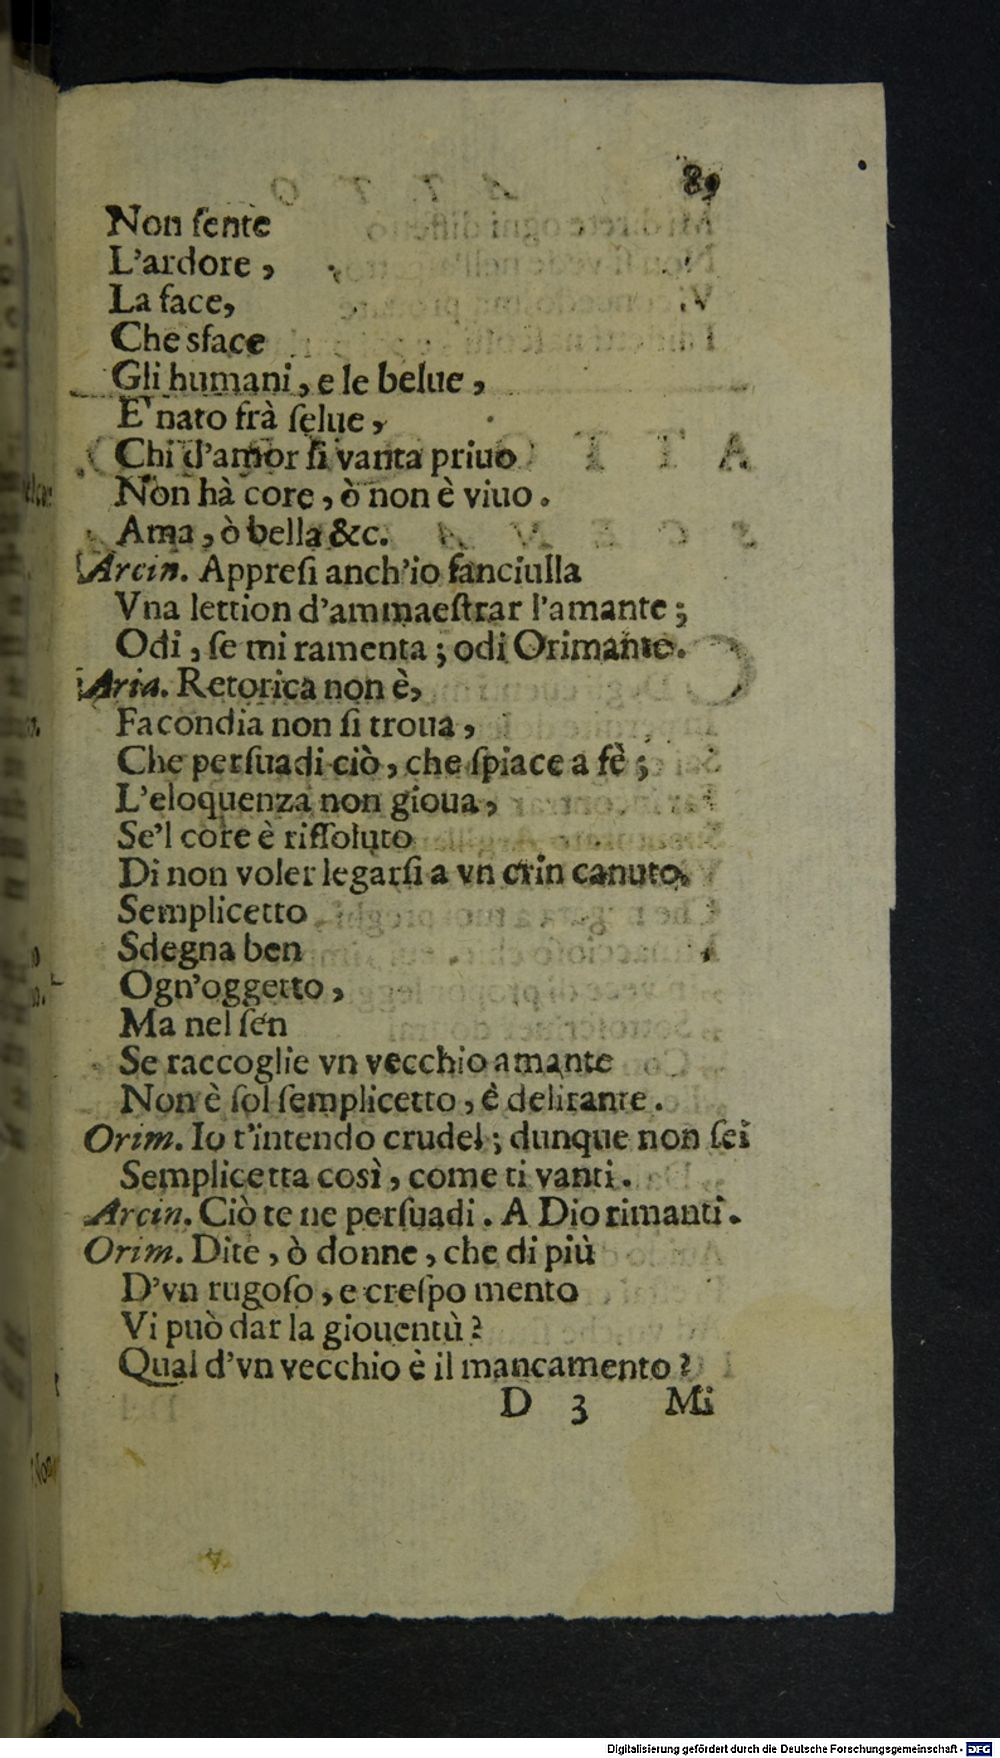 89
Non ſente
L'ardore,
La face,
Che sface
Gli humani, e le belue,
E' nato frà ſelue,
Chi d'amor ſi vanta priuo
Non hà core, ò non è viuo.
Ama, ò bella &c.
Arcin. Appreſi anch'io fanciulla
Vna lettion d'ammaeſtrar l'amante;
Odi, ſe mi ramenta; odi Orimante.
Aria. Retorica non è,
Facondia non ſi troua,
Che perſuadi ciò, che ſpiace a fè;
L'eloquenza non gioua,
Se'l core è riſſoluto
Di non voler legarſi a vn crin canuto.
Semplicetto
Sdegna ben
Ogn'oggetto,
Ma nel ſen
Se raccoglie vn vecchio amante
Non è ſol ſemplicetto, è delirante.
Orim. Io t'intendo crudel; dunque non ſei
Semplicetta così, come ti vanti.
Arcin. Ciò te ne perſuadi. A Dio rimanti.
Orim. Dite, ò donne, che di più
D'vn rugoſo, e creſpo mento
Vi può dar la giouentù?
Qual d'vn vecchio è il mancamento?
D 3 Mi
Digitalisierung gefördert durch die Deutsche Forschungsgemeinschaft - DFG